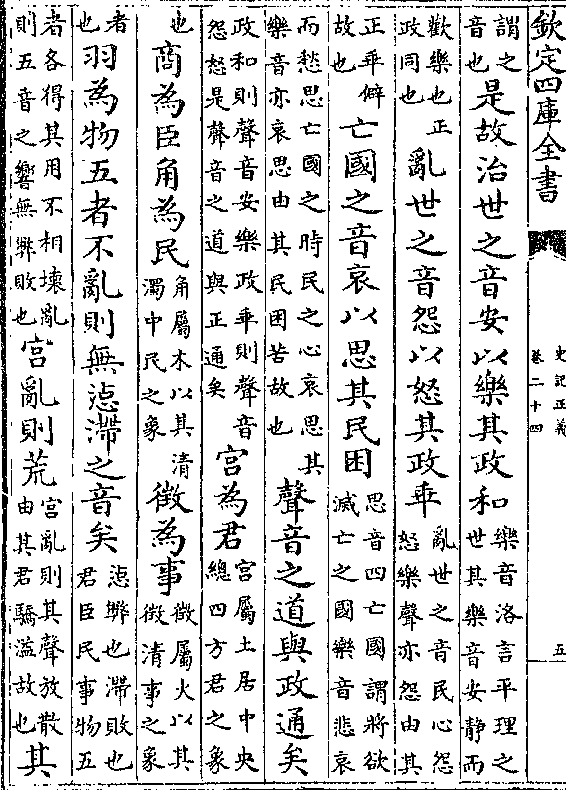 欽定四庫全書
史記正義
卷二十四
五
謂之
音也
是故治世之音安以樂其政和
樂音洛言平理之
世其樂音安静而
歡樂也正
政同也
亂世之音怨以怒其政乖
亂世之音民心怨
怒樂聲亦怨由其
正乖僻
故也
亡國之音哀以思其民困
思音四亡國謂將欲
滅亡之國樂音悲哀
而愁思亡國之時民之心哀思其
樂音亦哀思由其民困苦故也
聲音之道與政通矣
政和則聲音安樂政乖則聲音
怨怒是聲音之道與正通矣
宮為君
宮屬土居中央
總四方君之象
也
商為臣角為民
角屬木以其清
濁中民之象
徵為事
徵屬火以其
徵清事之象
者
也
羽為物五者不亂則無惉滯之音矣
惉弊也滯敗也
君臣民事物五
者各得其用不相壞亂
則五音之響無弊敗也
宮亂則荒
宮亂則其聲放散
由其君驕溢故也
其